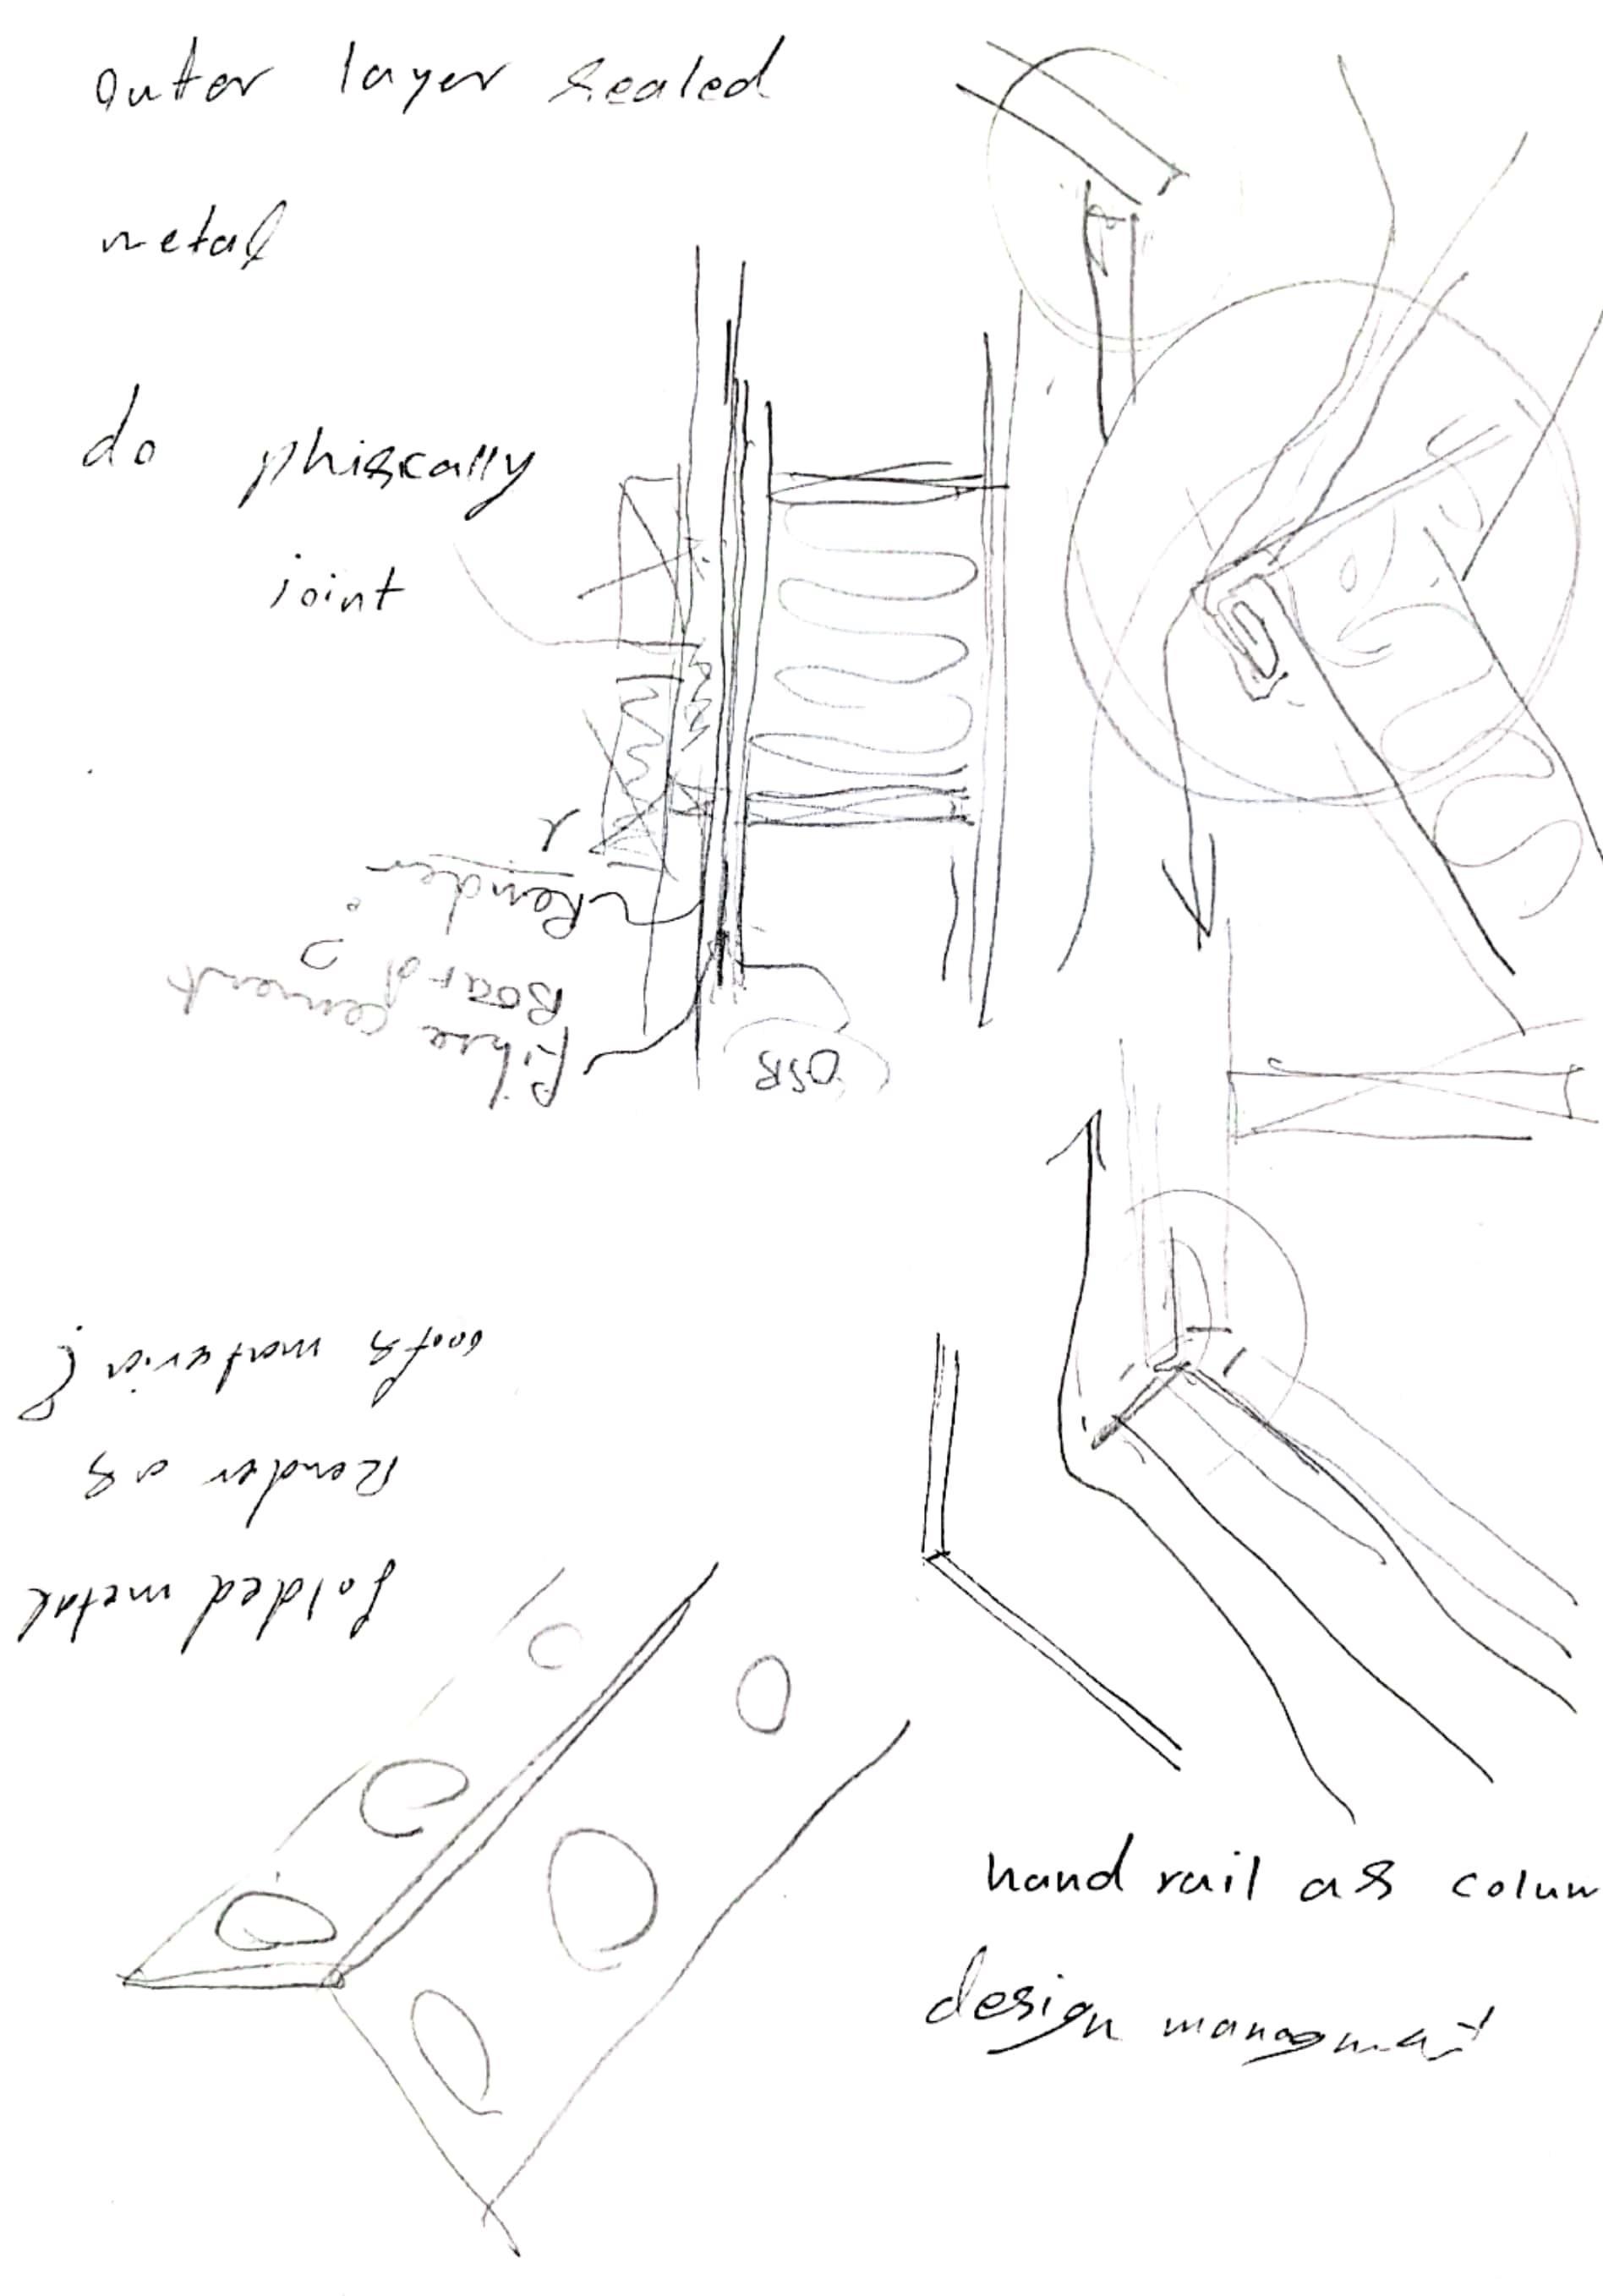 outer layer sealed
metal
do phiscally
joint
Render
Fibre cement
Board ?
OSB
folded metal
Render as
hand rail as colum
design managment